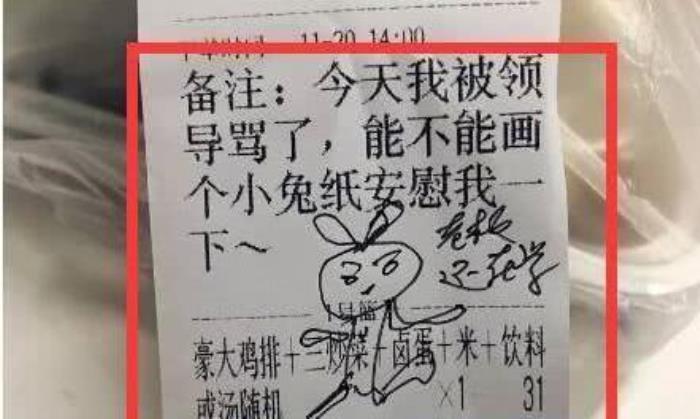 11-20 14:00
备注：今天我被领
导骂了，能不能画
个小兔纸安慰我一
下～
老板
还在学
1号篮
豪大鸡排+三炒菜+卤蛋+米+饮料
或汤随机 ×1 31